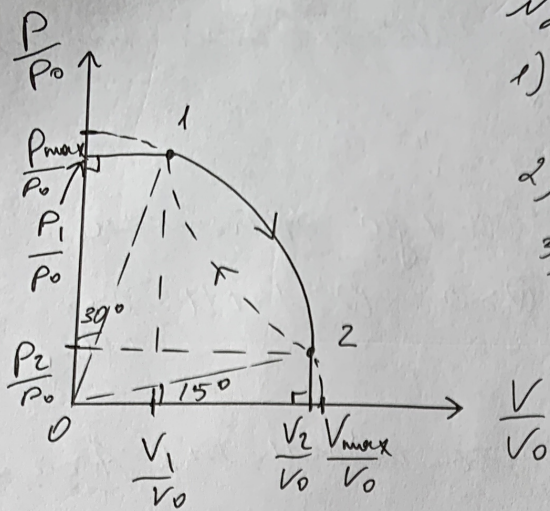 P/P₀
1
Pmax/P₀
P₁/P₀
30°
P₂/P₀
2
15°
0
V₁/V₀
V₂/V₀
Vmax/V₀
V/V₀
1)
2)
3